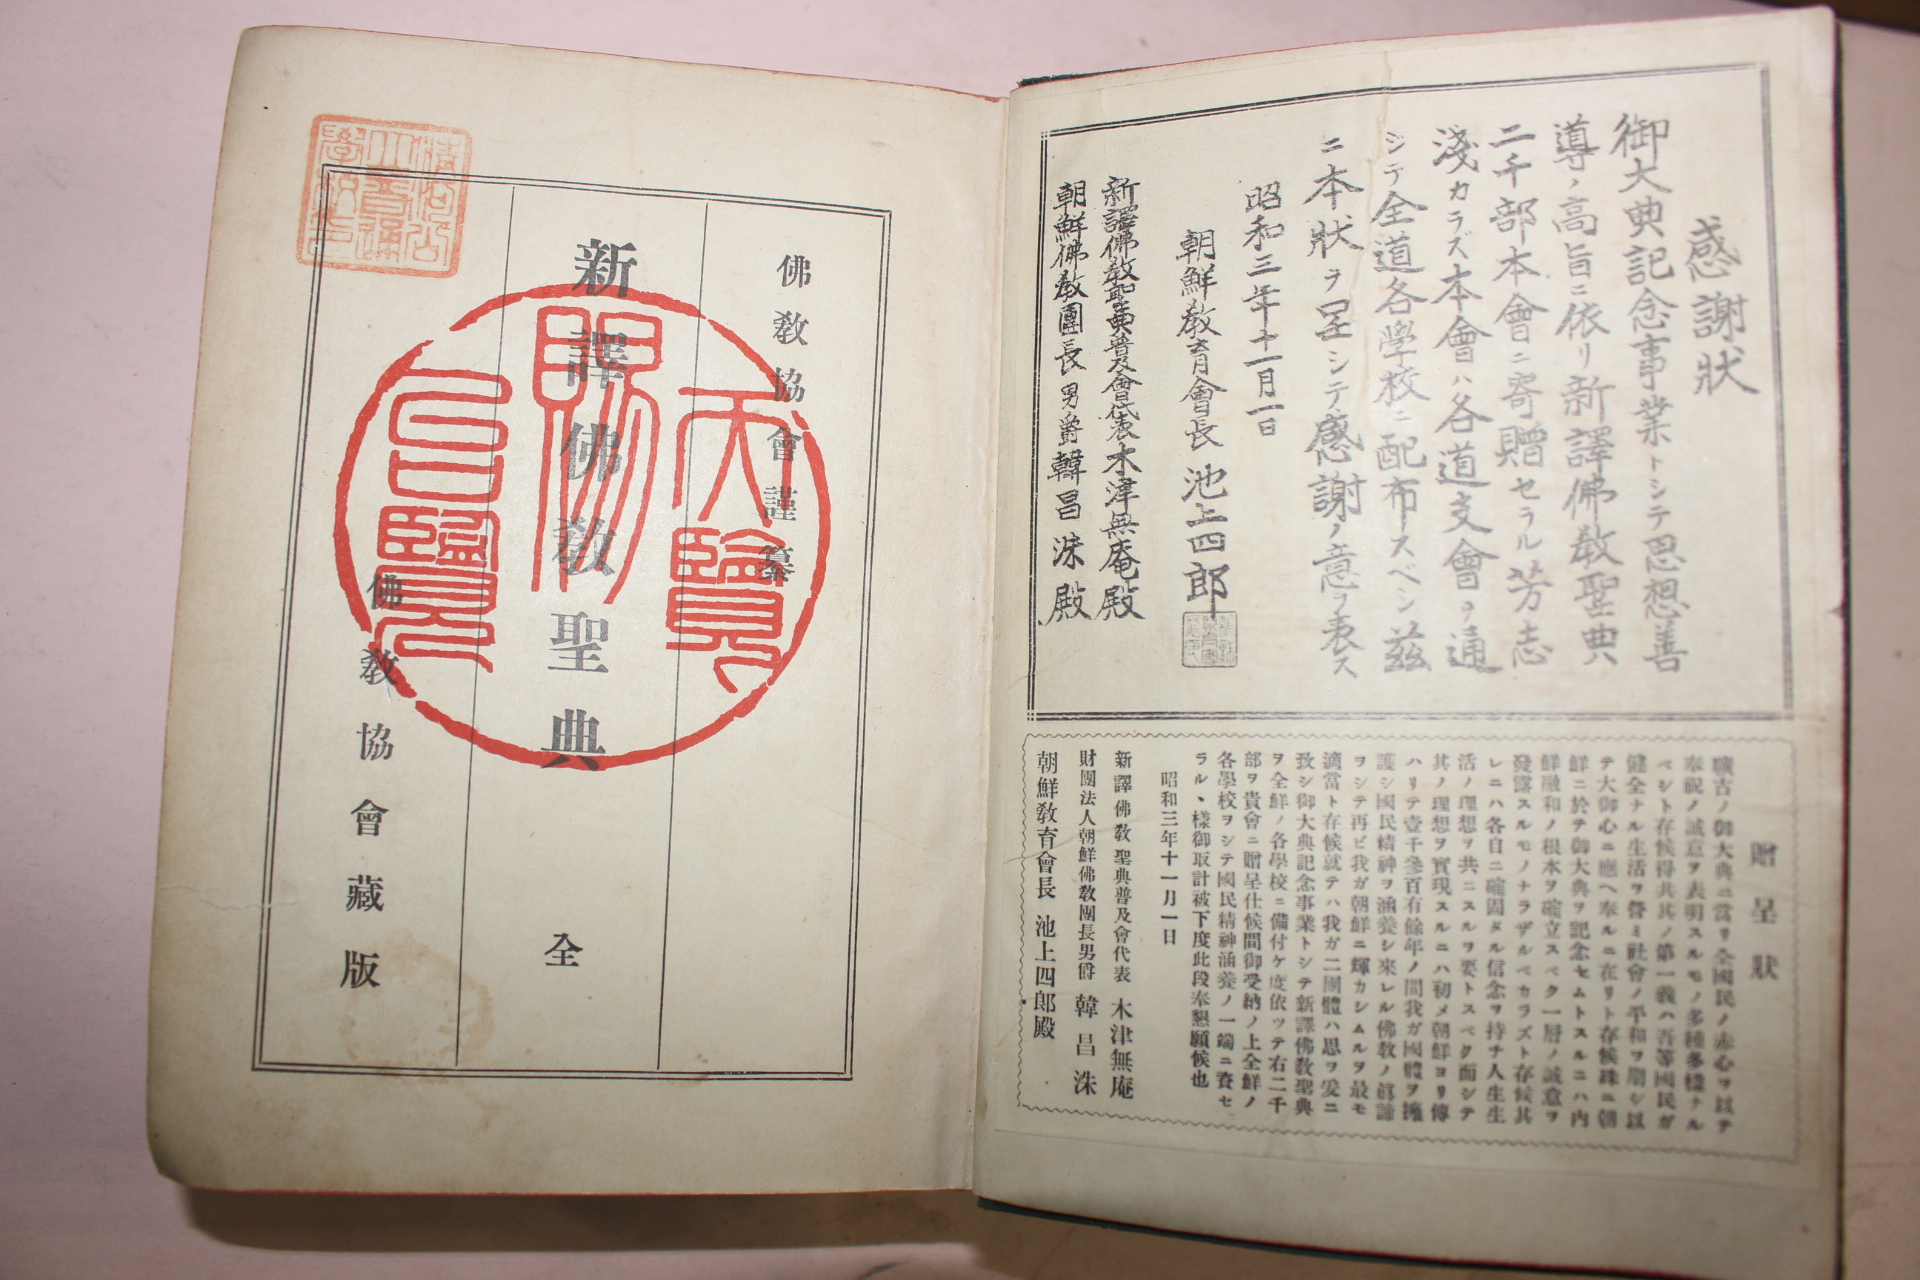 感謝狀
御大典記念事業トシテ思想善
導ノ高旨ニ依リ新譯佛教聖典
二千部本會ニ寄贈セラル芳志
淺カラズ本會ハ各道支會ヲ通
シテ全道各學校ニ配布スベシ茲
ニ本狀ヲ呈シテ感謝ノ意ヲ表ス
昭和三年十一月一日
朝鮮教育會長 池上四郎
新譯佛教聖典普及會代表 木津無庵殿
朝鮮佛教團長男爵 韓昌洙殿
贈呈狀
曠古ノ御大典ニ當リ全國民ノ赤心ヲ以テ
奉祝ノ誠意ヲ表明スルモノ多種多樣ナル
ベシト存候得共其ノ第一義ハ吾等國民ガ
健全ナル生活ヲ營ミ社會ノ平和ヲ期シ以
テ大御心ニ應ヘ奉ルニ在リト存候殊ニ朝
鮮ニ於テ御大典ヲ記念セムトスルニハ內
鮮融和ノ根本ヲ確立スベク一層ノ誠意ヲ
發露スルモノナラザルベカラズト存候其
レニハ各自ニ確固タル信念ヲ持チ人生生
活ノ理想ヲ共ニスルヲ要トスベク而シテ
其ノ理想ヲ實現スルニハ初メ朝鮮ヨリ傳
ハリテ壹千參百有餘年ノ間我ガ國體ヲ擁
護シ國民精神ヲ涵養シ來レル佛教ノ眞諦
ヲシテ再ビ我ガ朝鮮ニ輝カシムルヲ最モ
滴當ト存候就テハ我ガ二團體ハ思ヲ爰ニ
致シ御大典記念事業トシテ新譯佛教聖典
ヲ全鮮ノ各學校ニ備付ケ度依ッテ右二千
部ヲ貴會ニ贈呈仕候間御受納ノ上全鮮ノ
各學校ヲシテ國民精神涵養ノ一端ニ資セ
ラル丶樣御取計被下度此段奉懇願候也
昭和三年十一月一日
新譯佛教聖典普及會代表 木津無庵
財團法人朝鮮佛教團長男爵 韓昌洙
朝鮮教育會長 池上四郎殿
佛教協會謹纂
新譯佛教聖典 全
佛教協會藏版
天覽
台覽